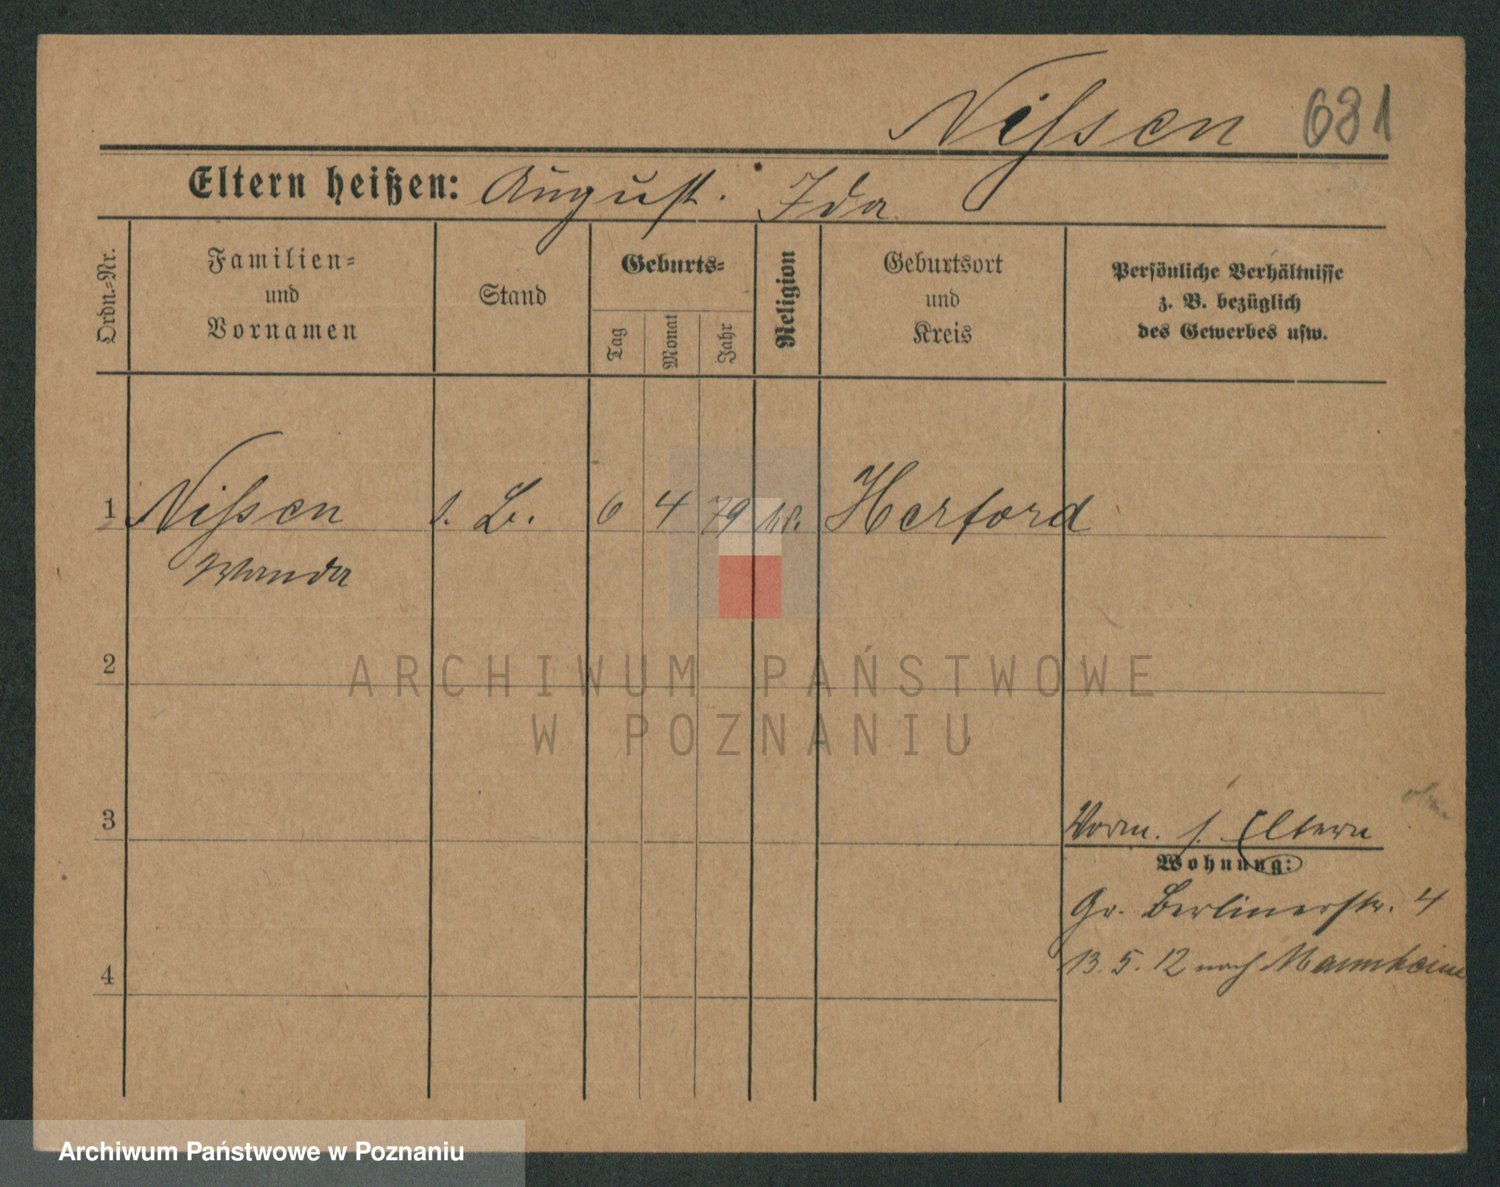 Nißsen 631
Eltern heißen: August. Ida
Ordn.-Nr.
Familien-
und
Vornamen
Stand
Geburts-
Tag
Monat
Jahr
Religion
Geburtsort
und
Kreis
Persönliche Verhältnisse
z. B. bezüglich
des Gewerbes usw.
1 Nißsen s. B. 6 4 79 Herford
Wanda
2
ARCHIWUM PAŃSTWOWE
W POZNANIU
3
Vorm. s. Eltern
Wohnung:
Gr. Berlinerstr. 4
13. 5. 12 nach Mannheim
4
Archiwum Państwowe w Poznaniu